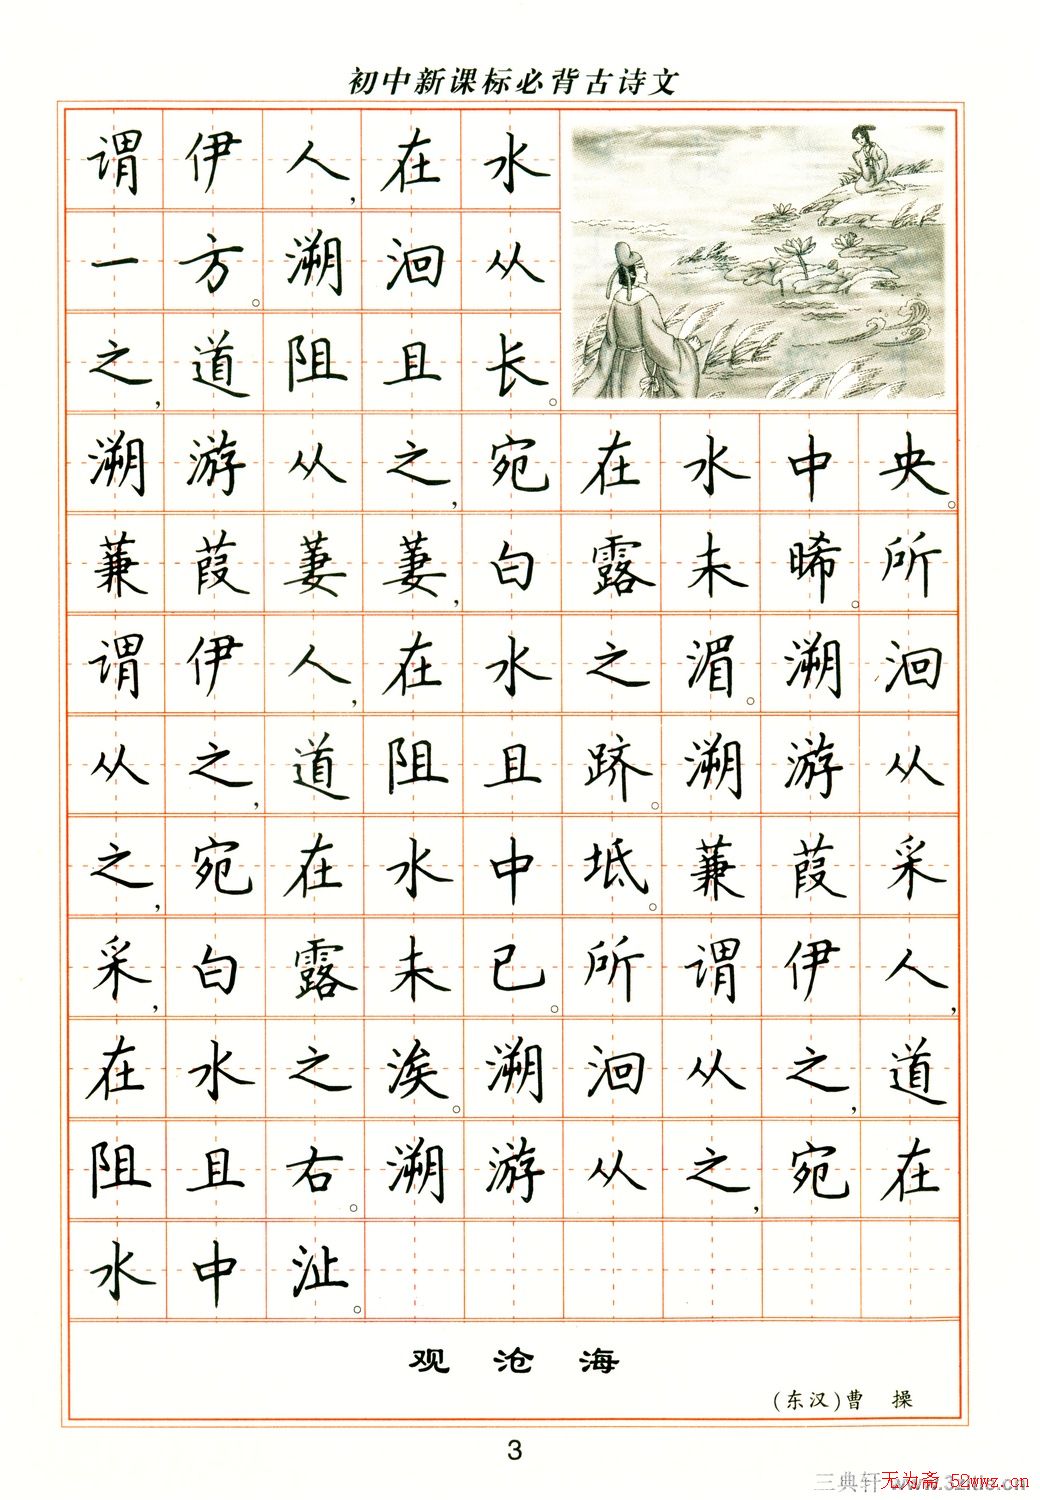 初中新课标必背古诗文
谓伊人,在水
一方。溯洄从
之,道阻且长。
溯游从之,宛在水中央。
蒹葭萋萋,白露未晞。所
谓伊人,在水之湄。溯洄
从之,道阻且跻。溯游从
之,宛在水中坻。蒹葭采
采,白露未已。所谓伊人,
在水之涘。溯洄从之,道
阻且右。溯游从之,宛在
水中沚。
观沧海
(东汉)曹 操
3
三典轩
无为斋 52wwz.cn